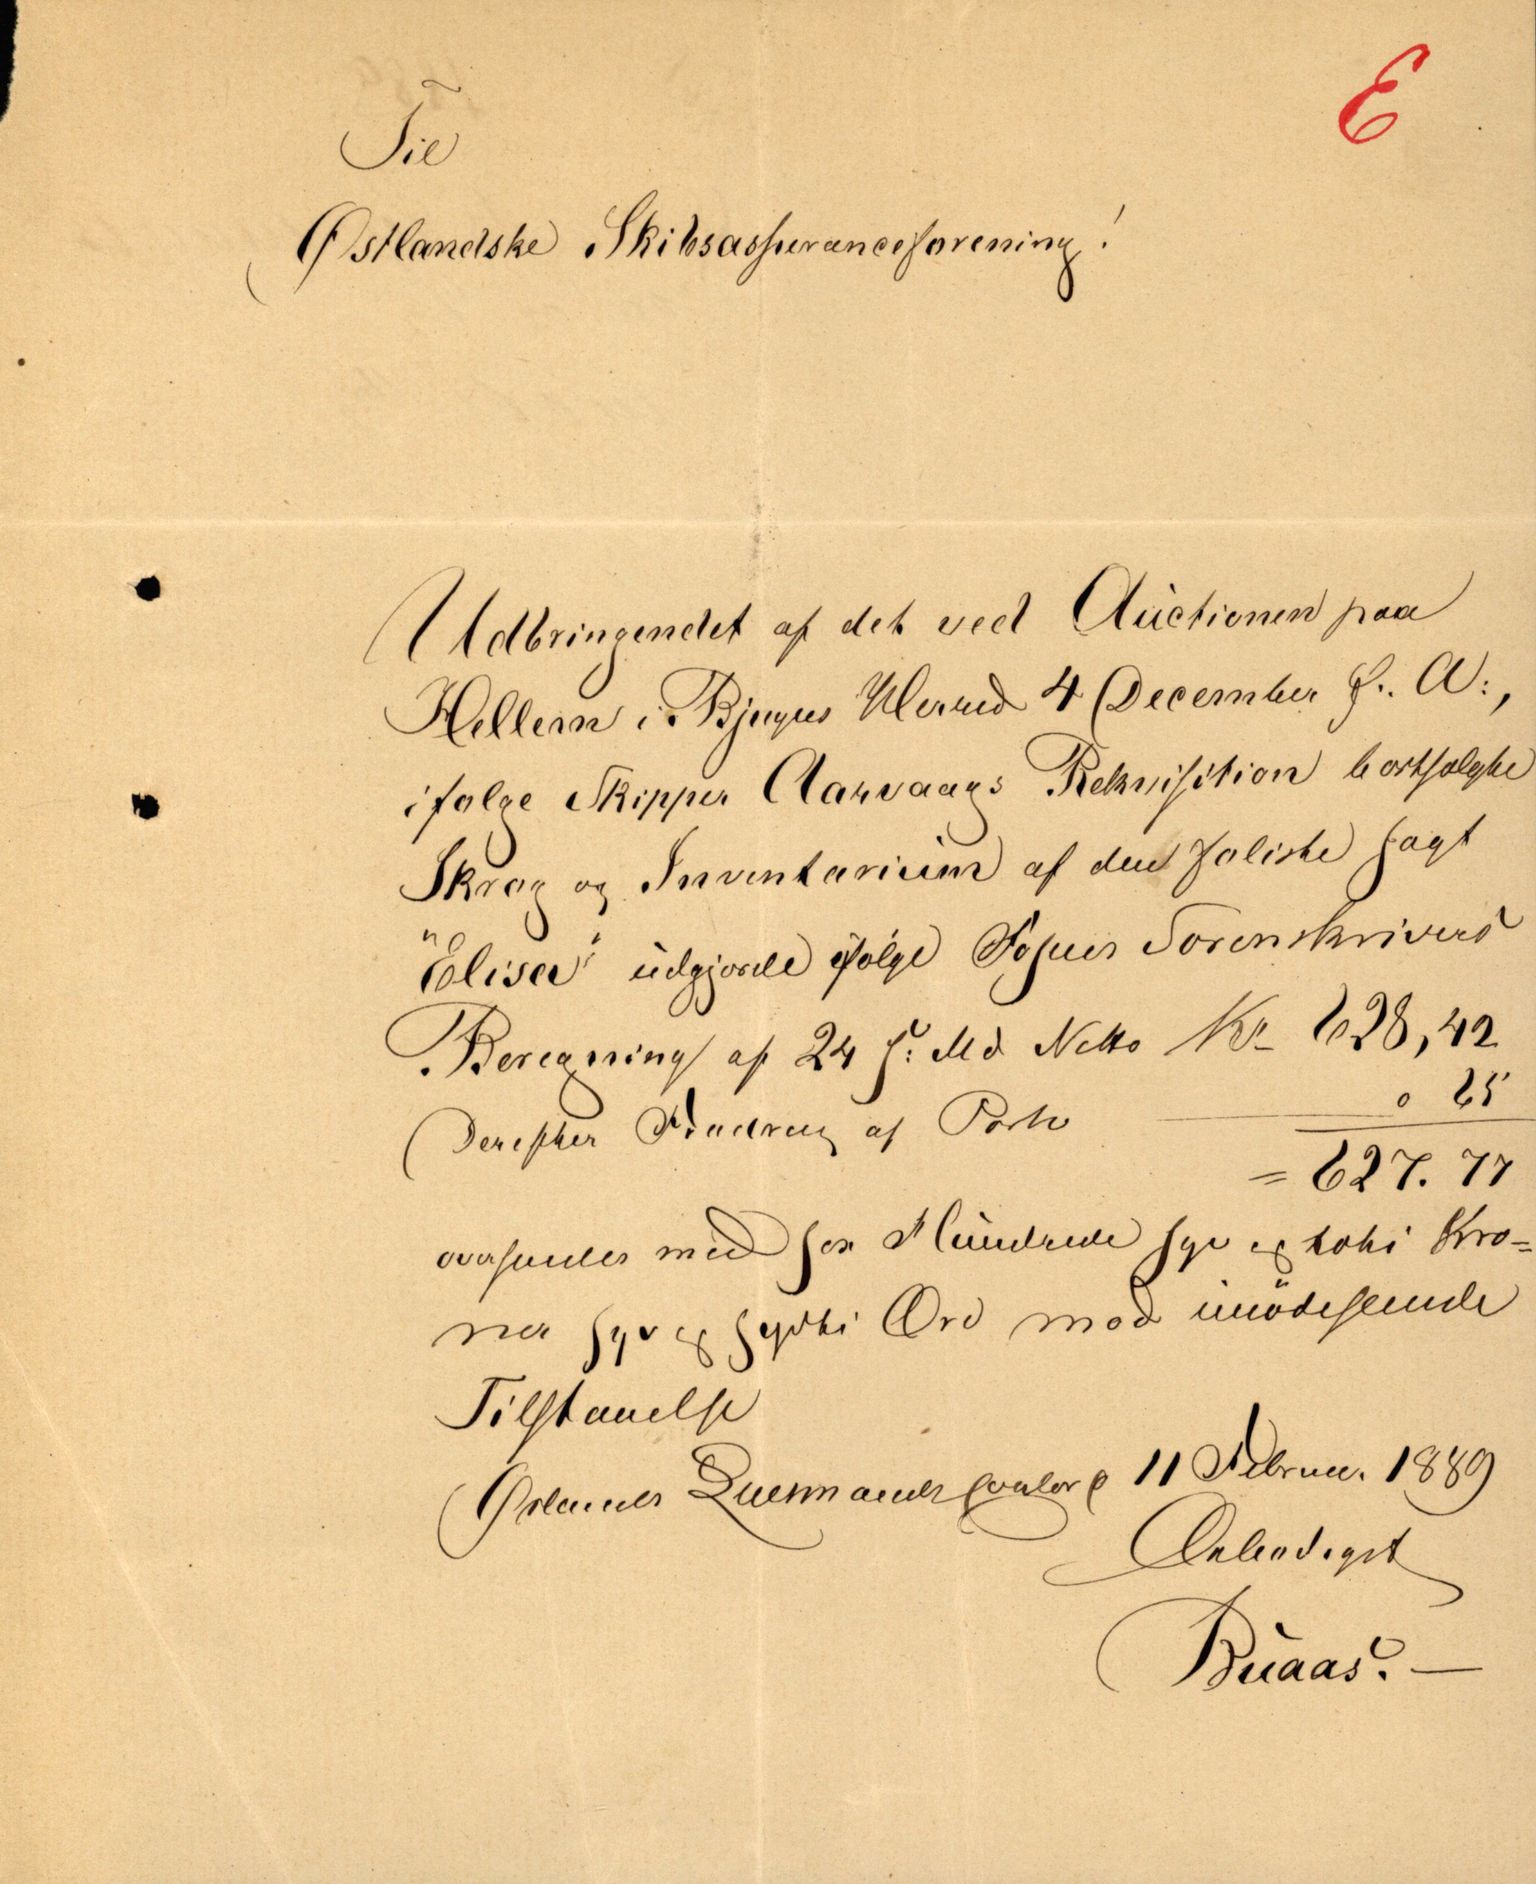 E
Til
Østlandske Skibsassuranceforening!
Udbringendet af det ved Auctionen paa
Hellem i Bjugns Herred 4 December f. A:,
ifølge Skipper Aarvaags Rekvisition bortsolgte
Skrog og Inventarium af den forliste Jagt
"Elisa" udgjorde ifølge Fosens Sorenskrivers
Beregning af 24 f: Md Netto Kr 628,42
Derefter Fradrag af Porto 0 65
= 627.77
oversendes med sex Hundrede syv og toti Kro=
ner syv og sytti Øre mod imødeseende
Tilstaaelse
Ørlandets Lensmandskontor 11 Februar 1889
Ærbødigst
Buaas. —